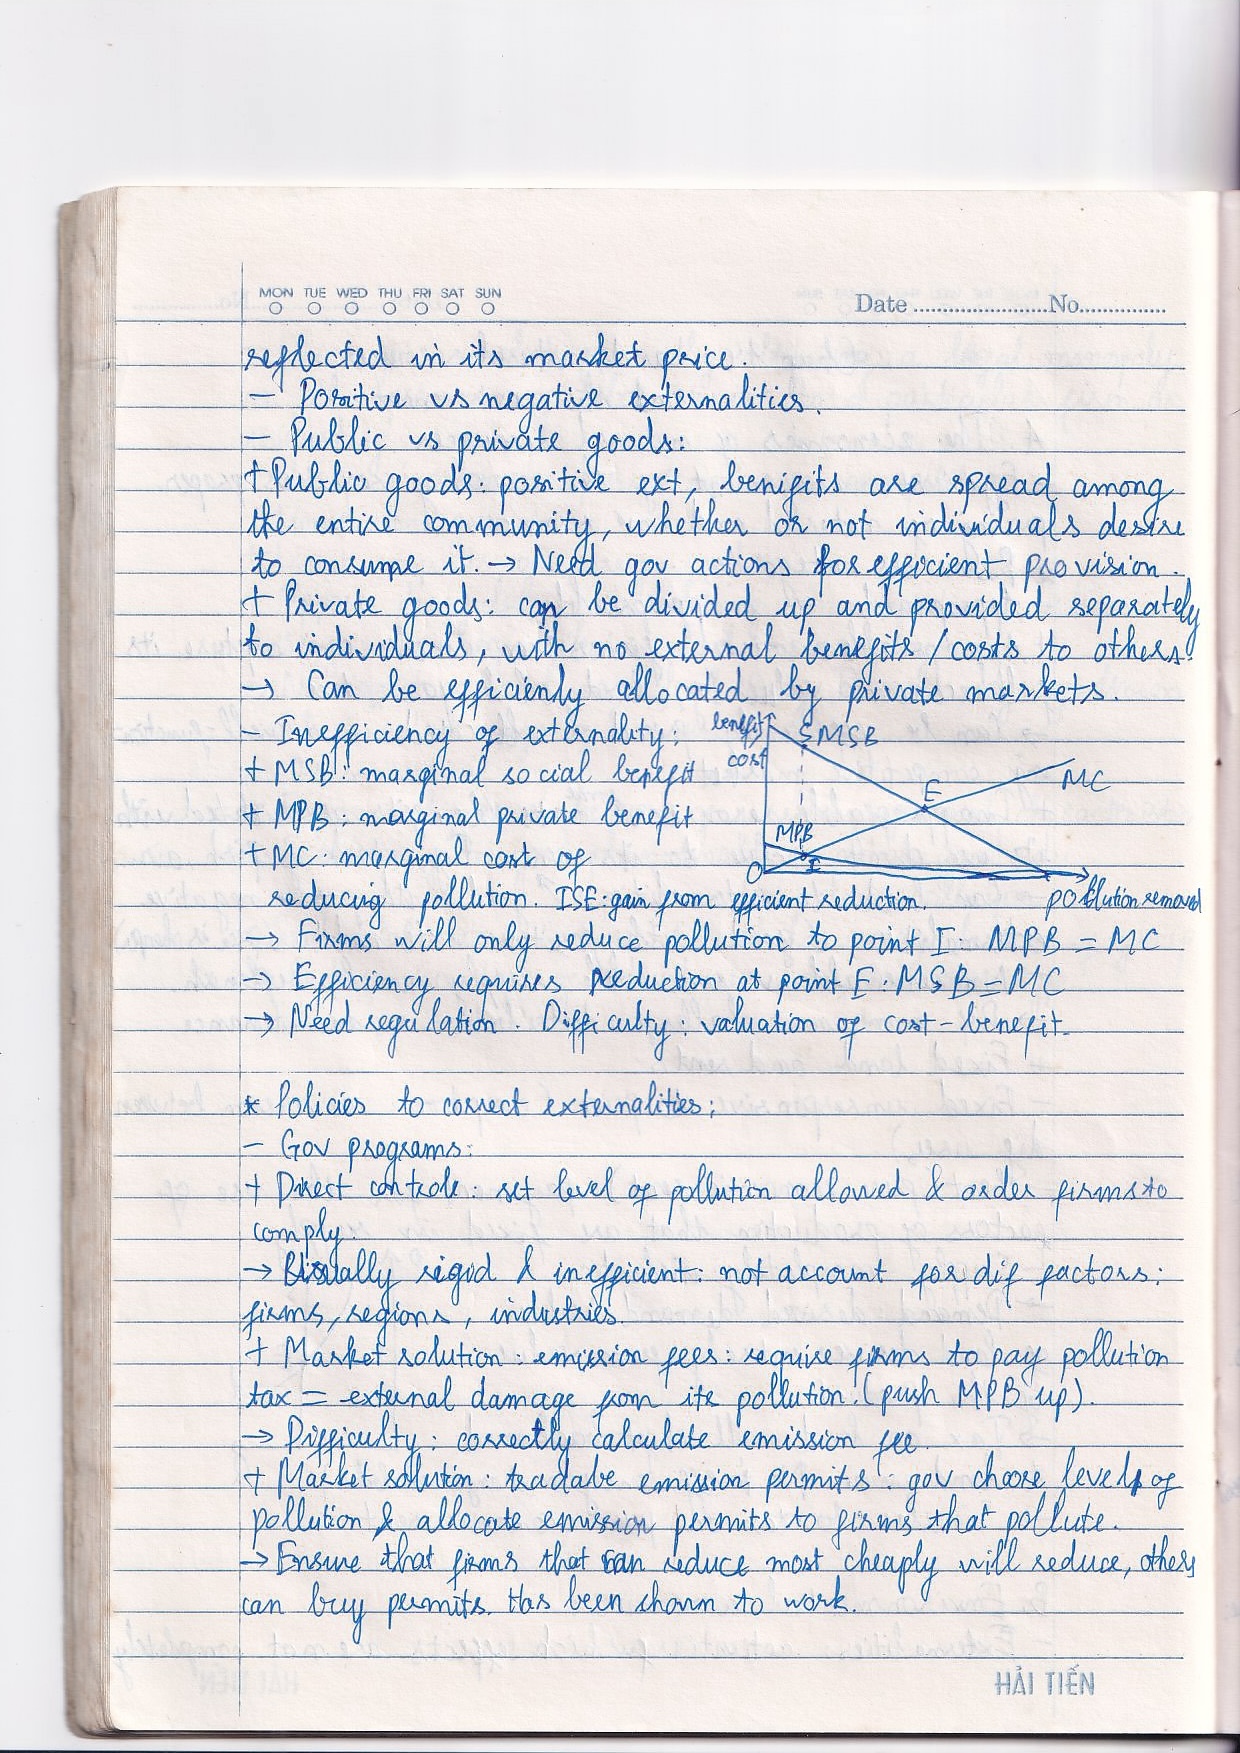 MON TUE WED THU FRI SAT SUN
Date ........................No................
reflected in its market price.
- Positive vs negative externalities.
- Public vs private goods:
+ Public goods: positive ext, benifits are spread among
the entire community, whether or not individuals desire
to consume it. → Need gov actions for efficient provision.
+ Private goods: can be divided up and provided separately
to individuals, with no external benefits / costs to others.
→ Can be efficienly allocated by private markets.
- Inefficiency of externality:
+ MSB: marginal social benefit
+ MPB: marginal private benefit
+ MC: marginal cost of
reducing pollution. ISE: gain from efficient reduction.
benefit
cost
S MSB
MC
E
MPB
I
O
pollution removed
→ Firms will only reduce pollution to point I: MPB = MC
→ Efficiency requires reduction at point E: MSB = MC
→ Need regulation. Difficulty: valuation of cost-benefit.
* Policies to correct externalities:
- Gov programs:
+ Direct controls: set level of pollution allowed & order firms to
comply.
→ Usually rigid & inefficient: not account for dif factors:
firms, regions, industries.
+ Market solution: emission fees: require firms to pay pollution
tax = external damage from its pollution. (push MPB up).
→ Difficulty: correctly calculate emission fee.
+ Market solution: tradabe emission permits: gov choose level of
pollution & allocate emission permits to firms that pollute.
→ Ensure that firms that can reduce most cheaply will reduce, others
can buy permits. Has been shown to work.
HẢI TIẾN